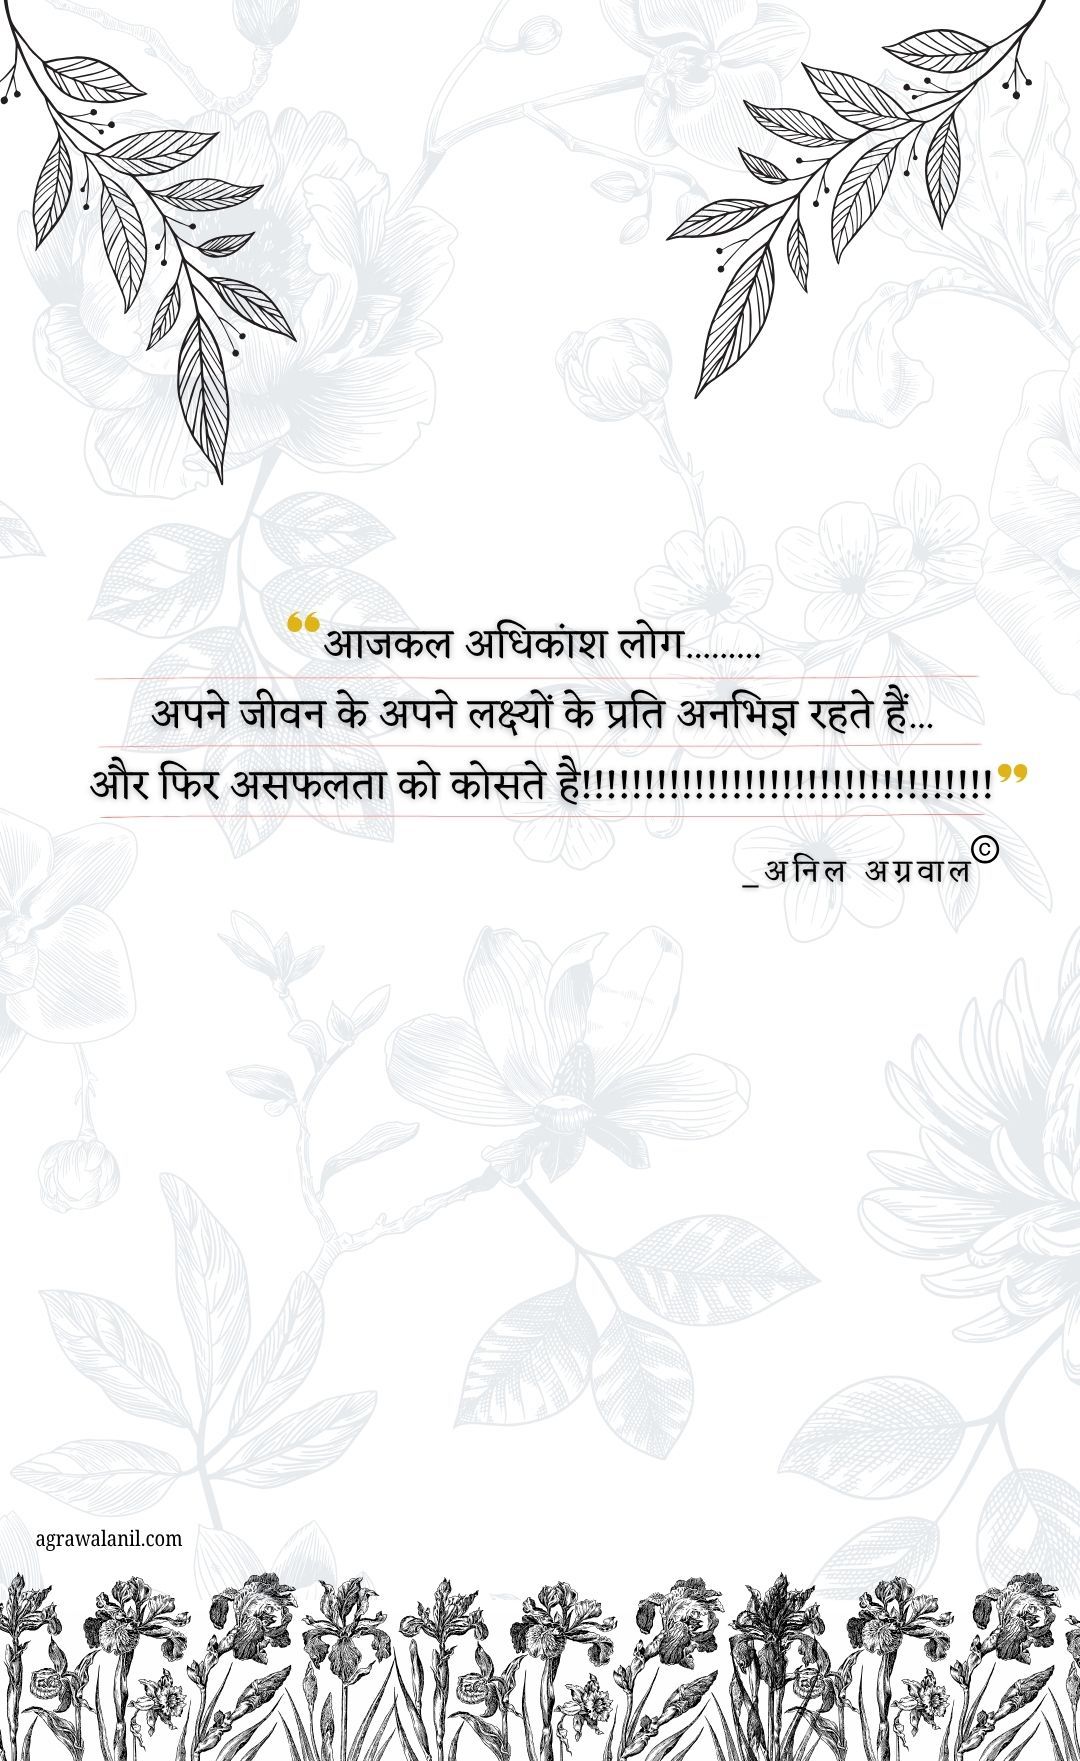 ❝आजकल अधिकांश लोग.........
अपने जीवन के अपने लक्ष्यों के प्रति अनभिज्ञ रहते हैं...
और फिर असफलता को कोसते है!!!!!!!!!!!!!!!!!!!!!!!!!!!!!!!!!!❞
_अनिल अग्रवाल©
agrawalanil.com